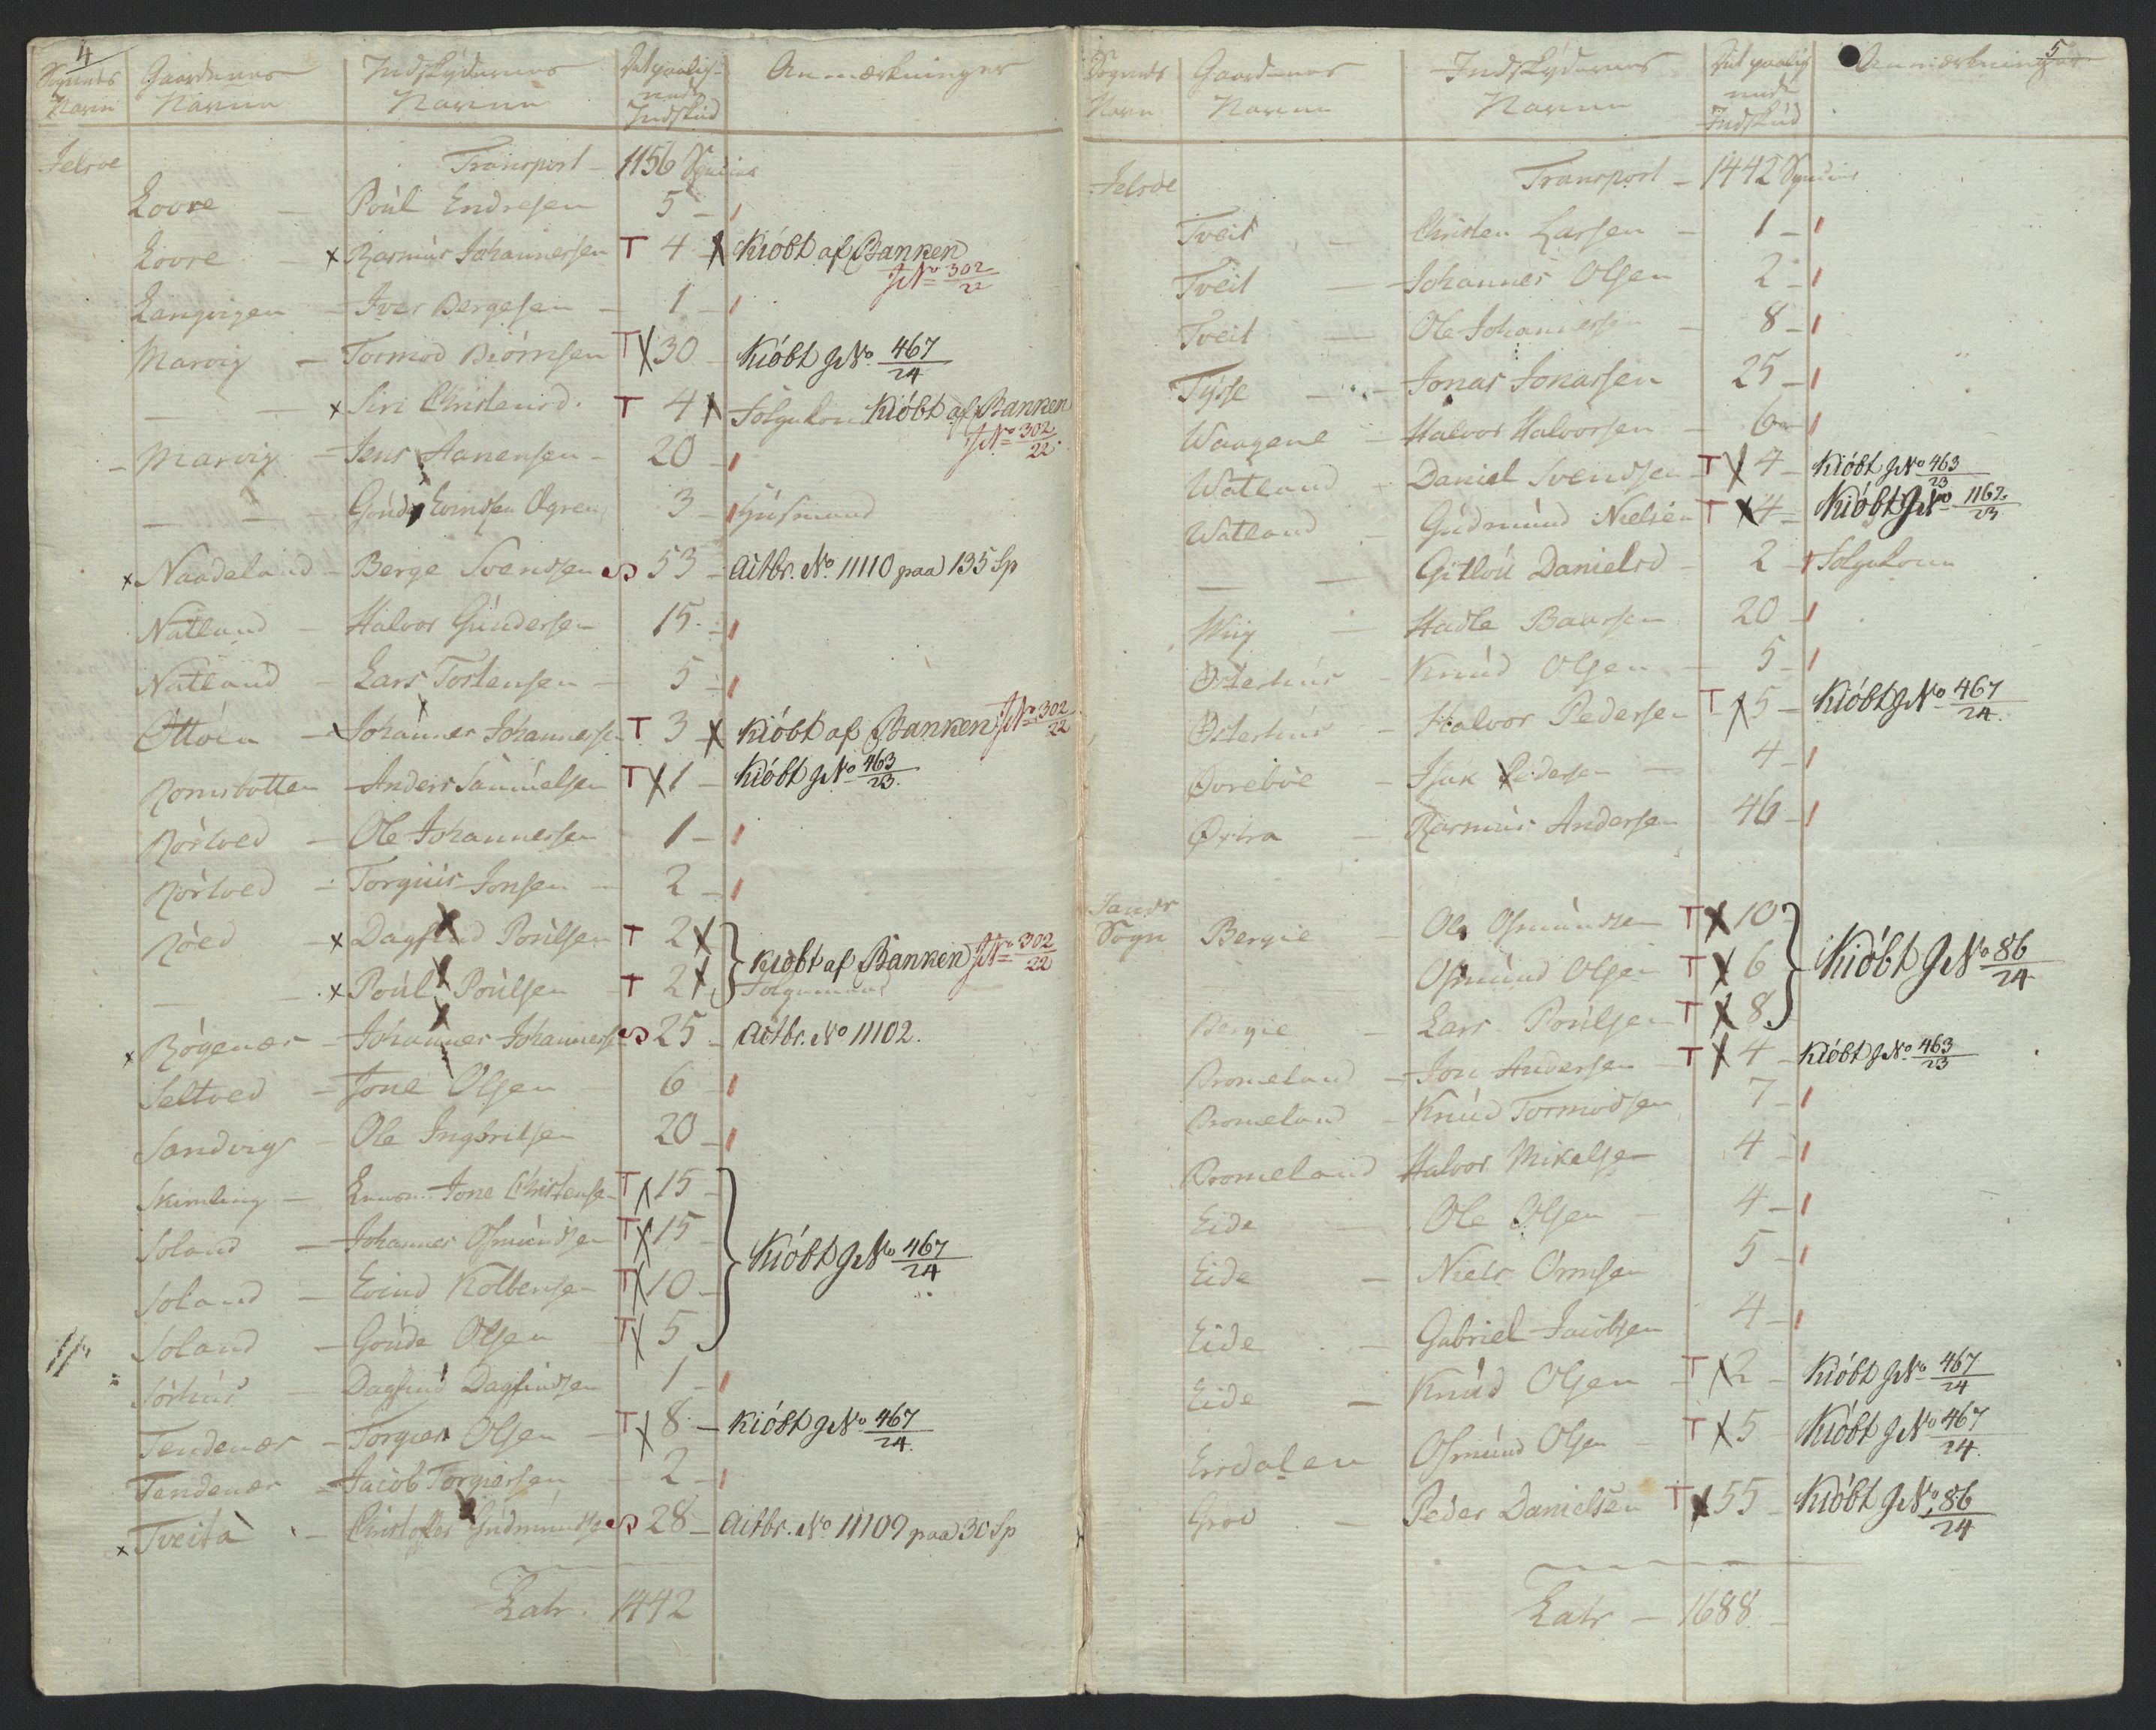 4
Sognets Navn | Gaardenes Navne | Indskydernes Navne | Det paalignede Indskud | Anmærkninger
Jelsøe | Transport - 1156 Species
Lovre - Poul Endresen 5 -
Lovre - x Rasmus Johannessen T 4 x Kiöbt af Banken JNo 302/22
Langvigen - Iver Bergesen - 1 -
Marvig - Tormod Biörnsen T x 30 - Kiöbt JNo 467/24
— — x Siri Christensd. T 4 x Folgekone Kiöbt af Banken JNo 302/22
- Marvig - Jens Aanensen - 20 -
— — - Goude Eoindsen Ogren 3 - Huusmand
x Naadeland - Berge Svendsen S 53 - Actbr. No 11110 paa 135 Sp
Natland - Halvor Gundersen 15 -
Natland - Lars Tostensen - 5 -
Ottöen - x Johannes Johannessen T 3 x Kiöbt af Banken JNo 302/22
Romsbotten - Anders Samuelsen T x 1 - Kiöbt JNo 463/23.
Rörtved - Ole Johannessen 1 -
Rörtved - Torgius Jonsen - 2 -
Röed - x Dagfind Poulsen T 2 x } Kiöbt af Banken JNo 302/22
— - x Poul Poulsen T 2 x Folgemand
x Rögenæs - Johannes Johannessen S 25 - Actbr. No 11102.
Seltved - Jone Olsen 6 -
Sandvigs - Ole Ingbritsen 20 -
Skimling - Jone Christensen T x 15 -
Soland - Johannes Osmundsen T x 15 -
Soland - Eoind Kolbensen T x 10 - } Kiöbt JNo 467/24
Soland - Goude Olsen T x 5
Sörhus Dagfind Dagfindsen 1 -
Tendenæs - Torgier Olsen - T x 8 - Kiöbt JNo 467/24.
Tendenæs - Jacob Torgiersen - 2 -
x Tveita - Christoffer Gudmundsen S 28 - Actbr. No 11109 paa 30 Sp
Latr. 1442
5
Sognets Navn | Gaardenes Navne | Indskydernes Navne | Det paalignede Indskud | Anmærkninger
Jelsöe | Transport - 1442 Species
Tveit - Christen Larsen - 1 -
Tveit - Johannes Olsen 2 -
Tveit - Ole Johannessen - 8 -
Tysse - Jonas Jonassen 25 -
Waagene - Halvor Halvorsen - 6 -
Watland - Daniel Svendsen - T x 4 - Kiöbt JNo 463/23
Watland - Gudmund Nielsen T x 4 - Kiöbt JNo 1162/23
— — Gitlou Danielsd - 2 - Folgekone
Wiig - Hadle Baarsen 20 -
Østerhus - Knud Olsen - 5 -
Østerhus - Halvor Pedersen T x 5 - Kiöbt JNo 467/24.
Øvreböe - Isak Pedersen - 4 -
Østra - Rasmus Andersen 46 -
Sands
Sogn Bergie - Ole Osmundsen T x 10
Osmund Olsen T x 6 } Kiöbt JNo 86/24
Bergie - Lars Poulsen T x 8
Bromeland - Jon Andersen - T x 4 - Kiöbt JNo 463/23
Bromeland - Knud Tormodsen 7 -
Bromeland Halvor Mikelsen 4 -
Eide - Ole Olsen - 4 -
Eide - Niels Ormsen 5 -
Eide - Gabriel Jacobsen 4 -
Eide - Knud Olsen - T x 2 - Kiöbt JNo 467/24
Eisdalen Osmund Olsen - T x 5 Kiöbt JNo 467/24.
Grov - Peder Danielsen T x 55 - Kiöbt JNo 86/24
Latr - 1688 -